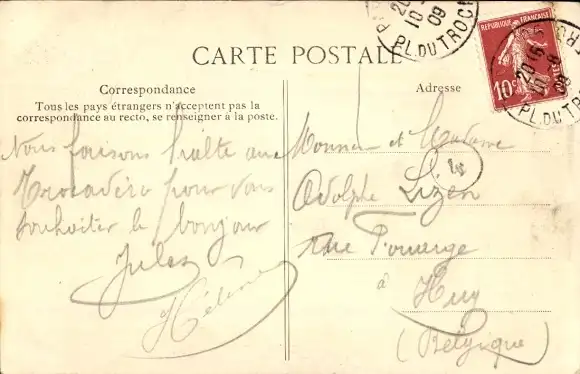 CARTE POSTALE
Correspondance
Tous les pays étrangers n'acceptent pas la
correspondance au recto, se renseigner à la poste.
Nous faisons halte au
Trocadéro pour vous
souhaiter le bonjour
Jules
Hélène
Adresse
Monsieur et Madame
Adolphe Lizen
rue
à
Huy
(Belgique)
REPUBLIQUE FRANÇAISE
10c
PL. DU TROC
20
10
09
PL. DU TRO